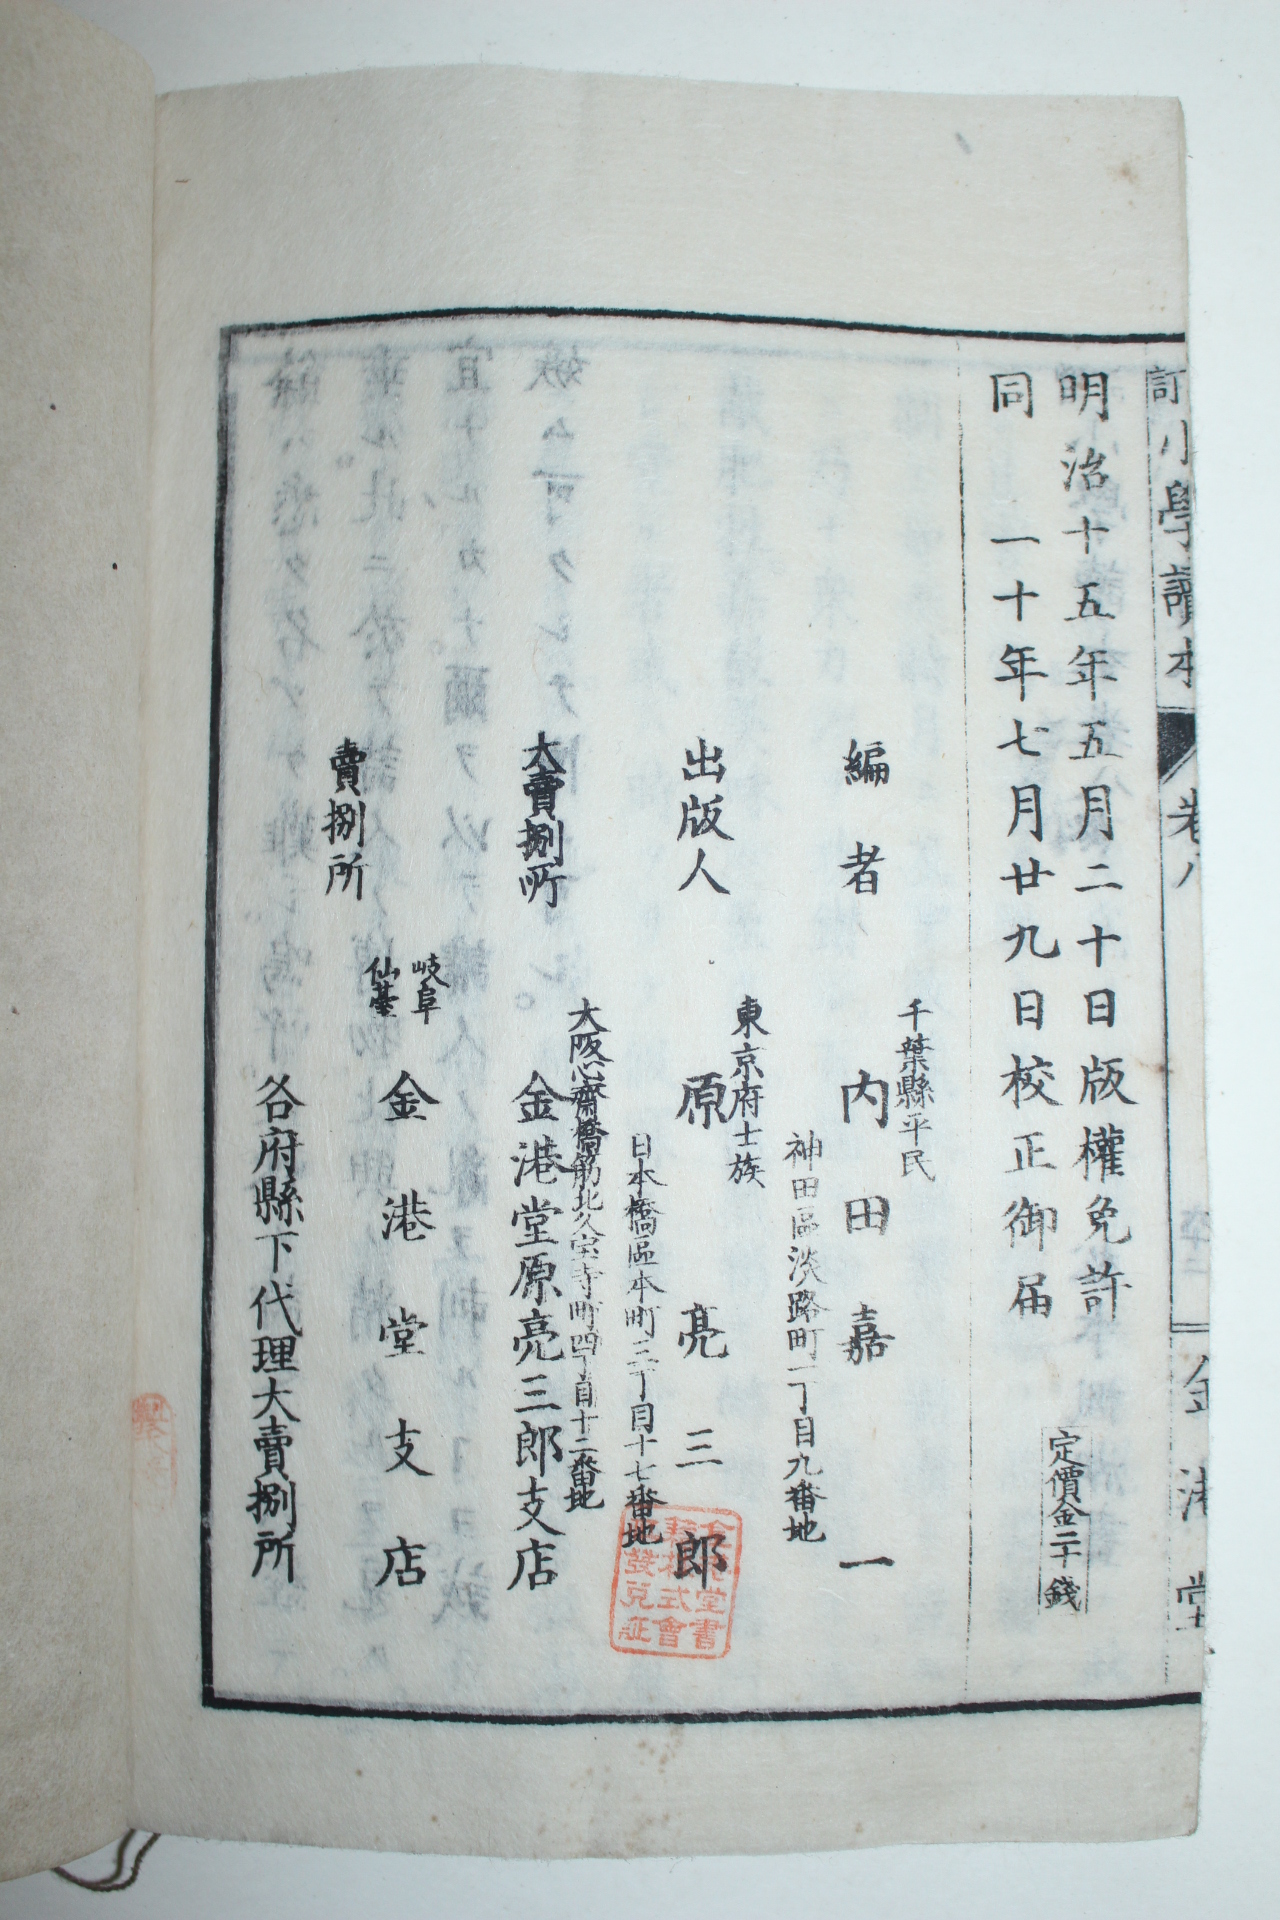 訂 小學讀本 卷八 金港堂
明治十五年五月二十日版權免許
同 一十年七月廿九日校正御届
定價金二十錢
千葉縣平民
編者 内田嘉一
神田區淡路町一丁目九番地
東京府士族
出版人 原亮三郎
日本橋區本町三丁目十七番地
大阪心齋橋筋北久宝寺町四丁目十二番地
大賣捌所 金港堂原亮三郎支店
岐阜
仙臺
賣捌所 金港堂支店
各府縣下代理大賣捌所
堂書
株式會
發兌証